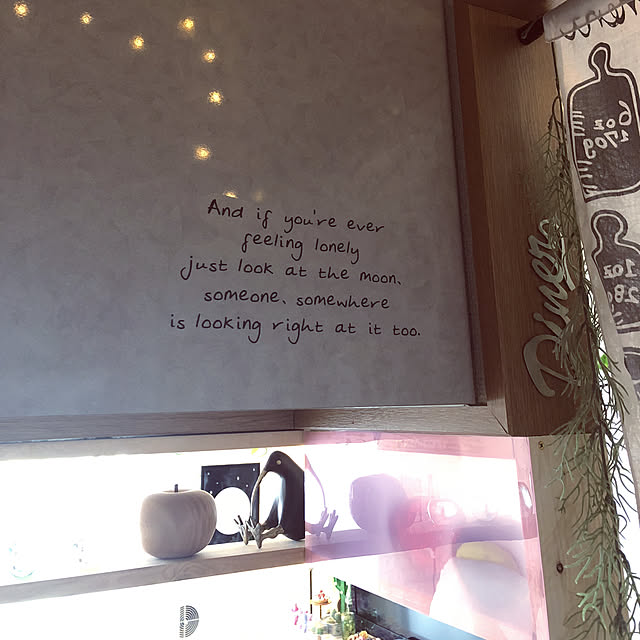 And if you're ever
feeling lonely
just look at the moon.
someone, somewhere
is looking right at it too.
Diner
6oz
170g
1oz
28g